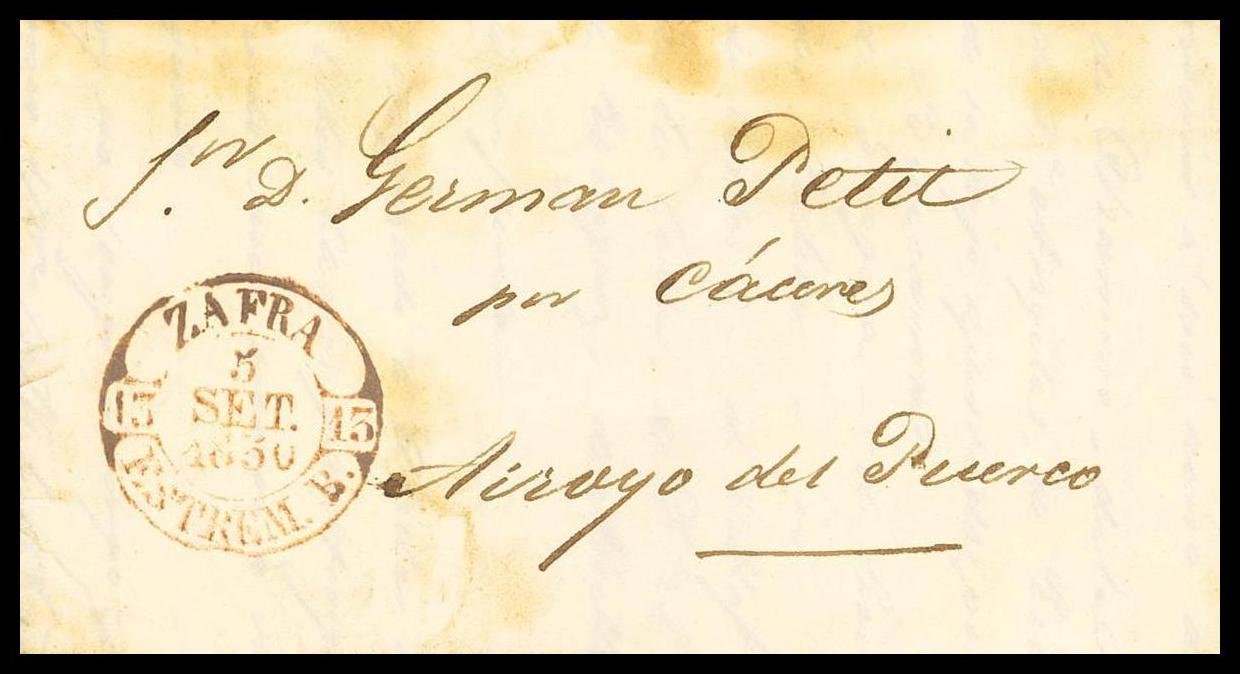 Sr. D. German Petit
por Cáceres
Arroyo del Puerco
ZAFRA
5
SET.
1850
13 13
ESTREM. B.